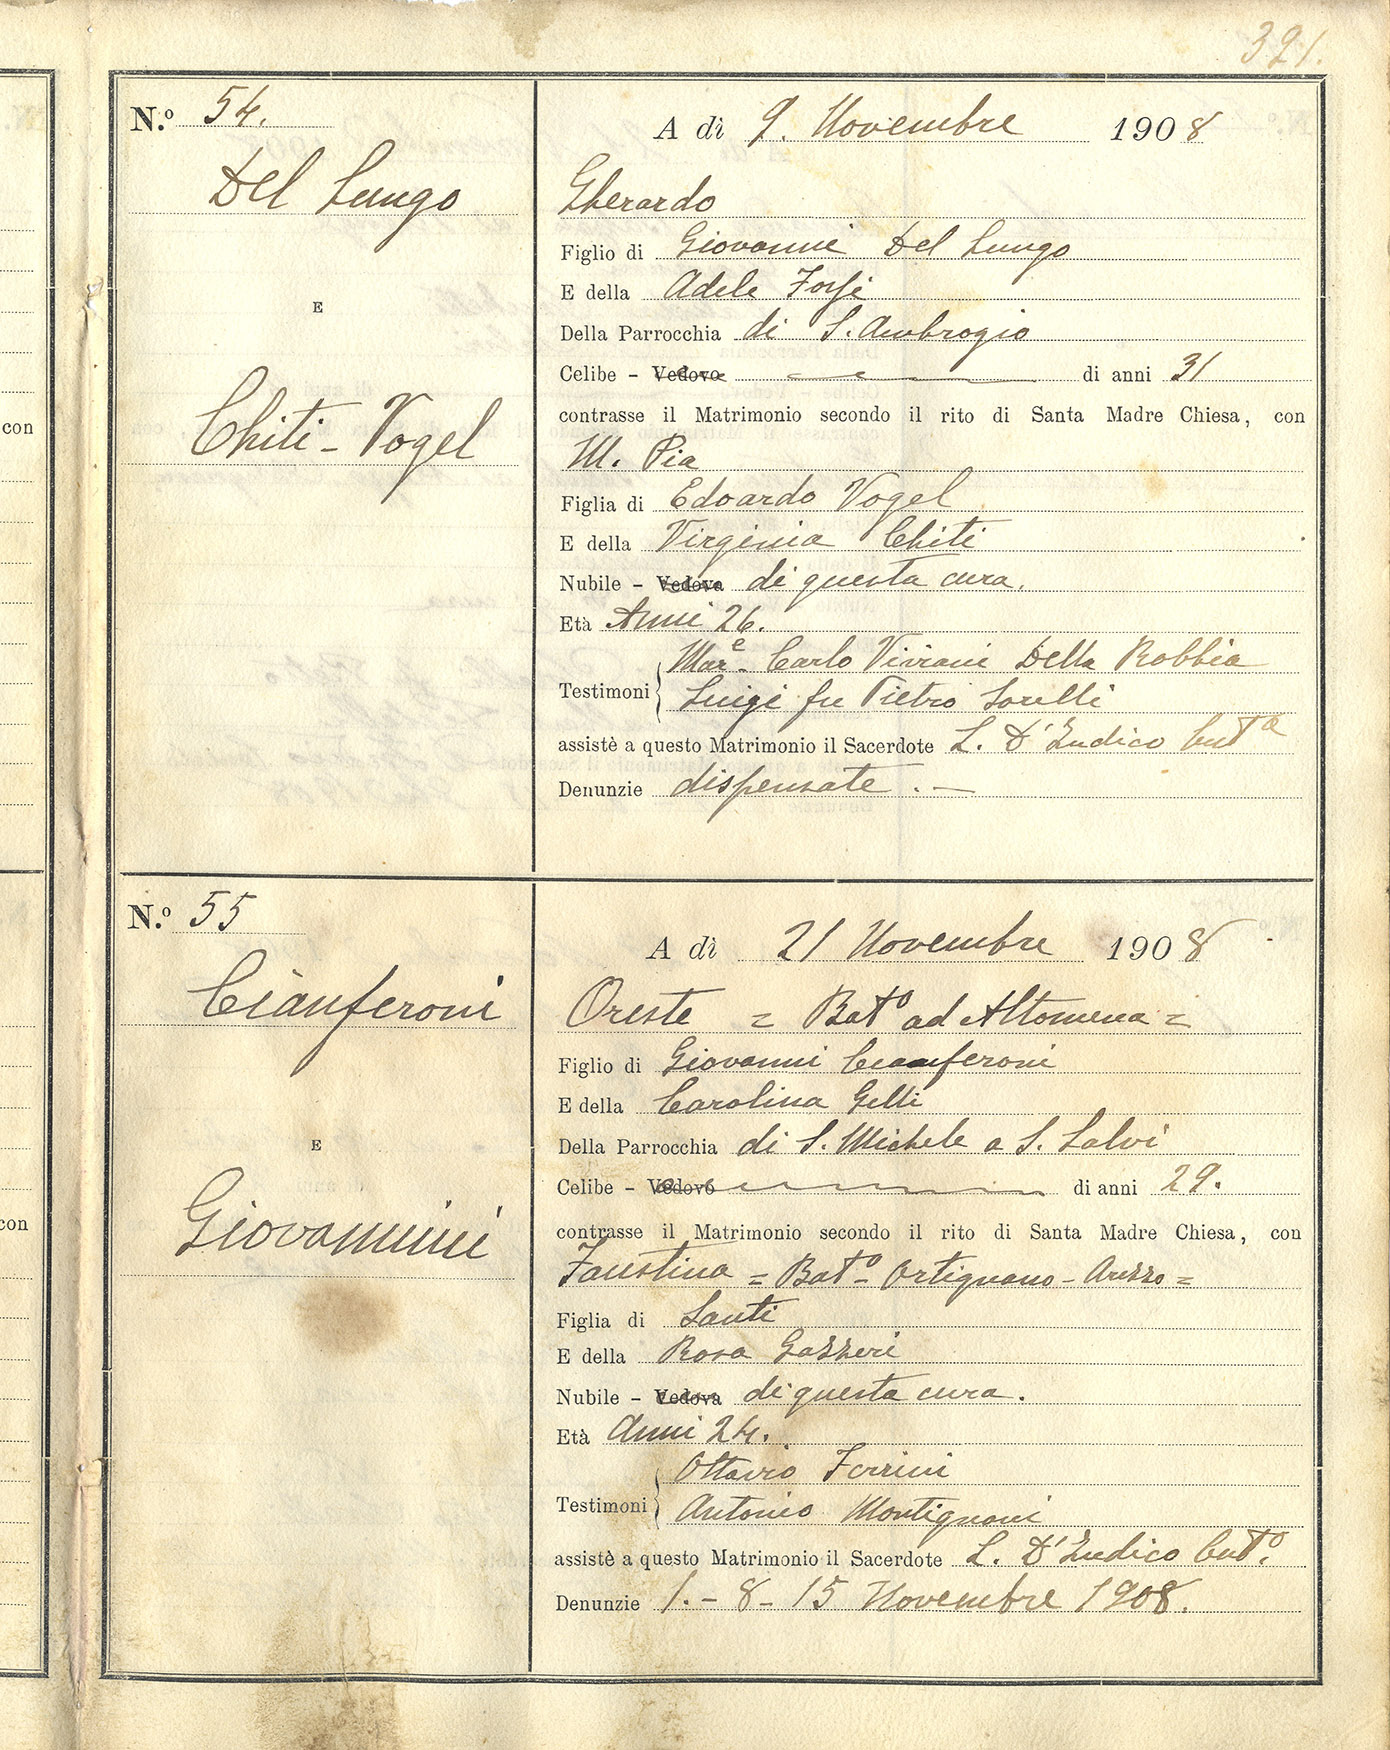 321.
con
con
N.º 54.
Del Lungo
E
Chiti - Vogel
A dì 9. Novembre 1908
Gherardo
Figlio di Giovanni Del Lungo
E della Adele Forsi
Della Parrocchia di S. Ambrogio
Celibe - Vedovo di anni 31
contrasse il Matrimonio secondo il rito di Santa Madre Chiesa, con
M. Pia
Figlia di Edoardo Vogel
E della Virginia Chiti
Nubile - Vedova di questa cura.
Età Anni 26.
Mar.e Carlo Viviani Della Robbia
Testimoni
Luigi fu Pietro Sorelli
assistè a questo Matrimonio il Sacerdote L. D'Indico
Denunzie dispensate . —
N.º 55
Cianferoni
E
Giovannini
A dì 21 Novembre 1908
Oreste = Batº ad Altomena =
Figlio di Giovanni Cianferoni
E della Carolina Gelli
Della Parrocchia di S. Michele a S. Salvi
Celibe - Vedovo di anni 29.
contrasse il Matrimonio secondo il rito di Santa Madre Chiesa, con
Faustina = Batº - Ortignano - Arezzo =
Figlia di Santi
E della Rosa Gazzeri
Nubile - Vedova di questa cura.
Età Anni 24.
Ottavio Ferrini
Testimoni
Antonio Montignani
assistè a questo Matrimonio il Sacerdote L. D'Indico
Denunzie 1. - 8 - 15 Novembre 1908.